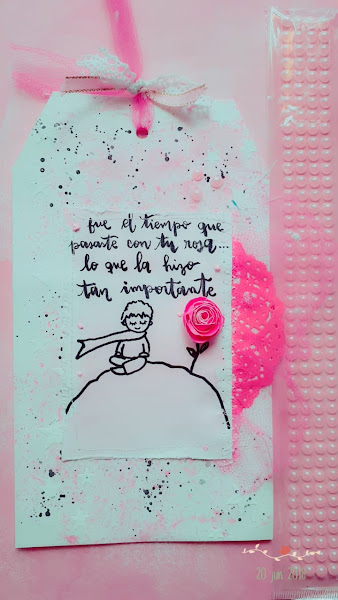 fue el tiempo que
pasaste con tu rosa...
lo que la hizo
tan importante
20 jun 2018